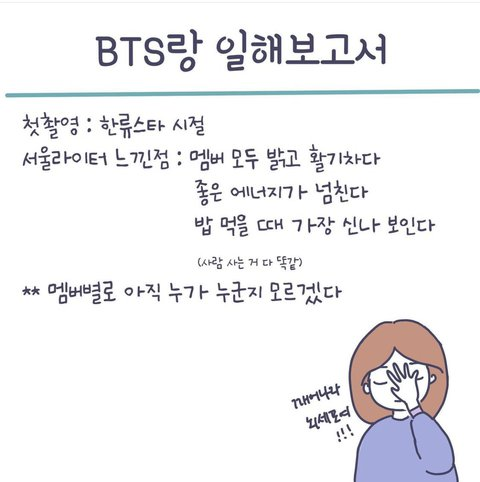 BTS랑 일해보고서
첫촬영 : 한류스타 시절
서울라이터 느낀점 : 멤버 모두 밝고 활기차다
좋은 에너지가 넘친다
밥 먹을 때 가장 신나 보인다
(사람 사는 거 다 똑같)
** 멤버별로 아직 누가 누군지 모르겠다
깨어나라
뇌세포여
!!!